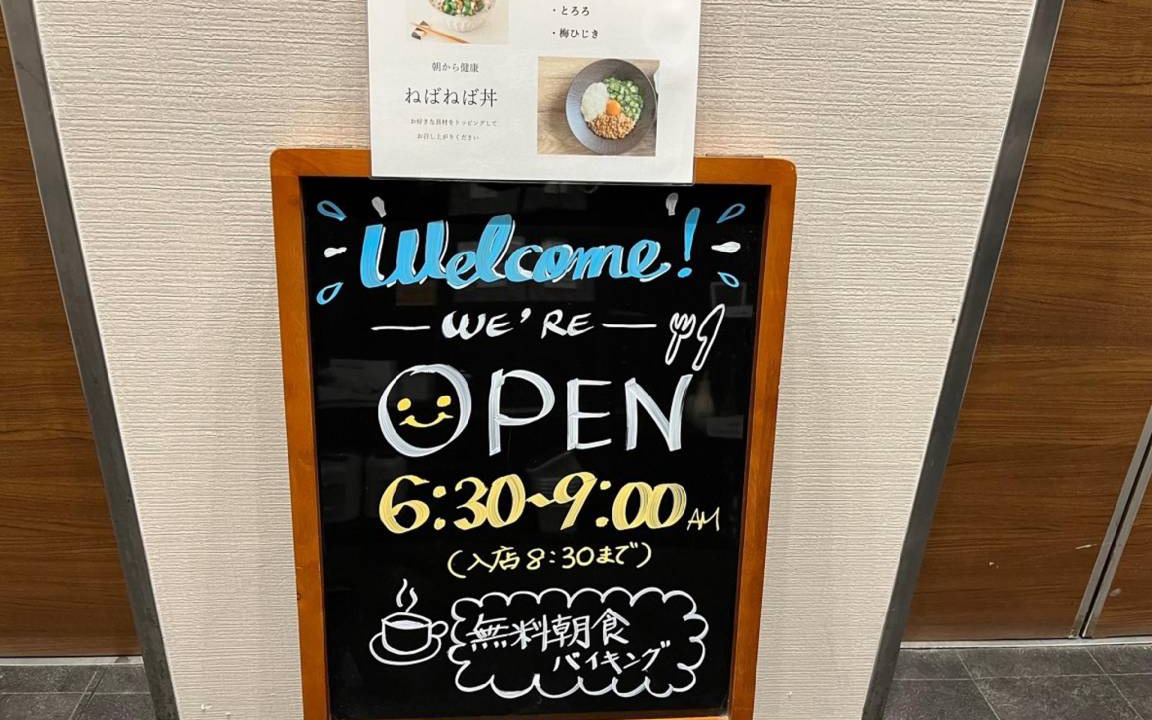 ・とろろ
・梅ひじき
朝から健康
ねばねば丼
お好きな具材をトッピングして
お召し上がりください
Welcome!
WE'RE
OPEN
6:30~9:00 AM
(入店8:30まで)
無料朝食
バイキング